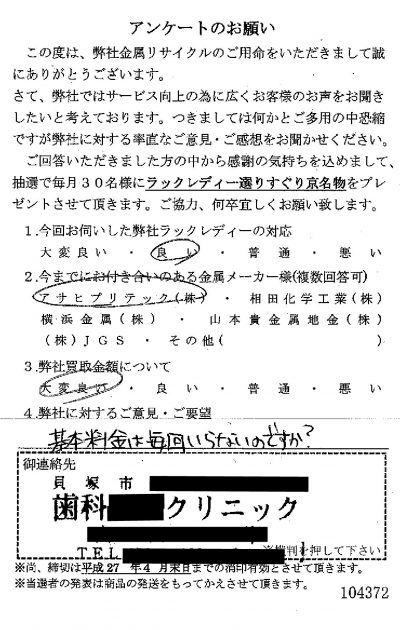 アンケートのお願い
この度は、弊社金属リサイクルのご用命をいただきまして誠
にありがとうございます。
さて、弊社ではサービス向上の為に広くお客様のお声をお聞き
したいと考えております。つきましては何かとご多用の中恐縮
ですが弊社に対する率直なご意見・ご感想をお聞かせください。
ご回答いただきました方の中から感謝の気持ちを込めまして、
抽選で毎月30名様にラックレディー選りすぐり京名物をプレ
ゼントさせて頂きます。ご協力、何卒宜しくお願い致します。
1.今回お伺いした弊社ラックレディーの対応
大変良い ・ 良い ・ 普通 ・ 悪い
2.今までにお付き合いのある金属メーカー様(複数回答可)
アサヒプリテック(株) ・ 相田化学工業(株)
横浜金属(株) ・ 山本貴金属地金(株)
(株)JGS ・ その他( )
3.弊社買取金額について
大変良い ・ 良い ・ 普通 ・ 悪い
4.弊社に対するご意見・ご要望
基本料金は毎回いらないのですか?
御連絡先
貝塚市
歯科 クリニック
TEL ※横判を押して下さい
※尚、締切は平成27 年4 月末日までの消印有効とさせて頂きます。
※当選者の発表は商品の発送をもってかえさせて頂きます。
104372